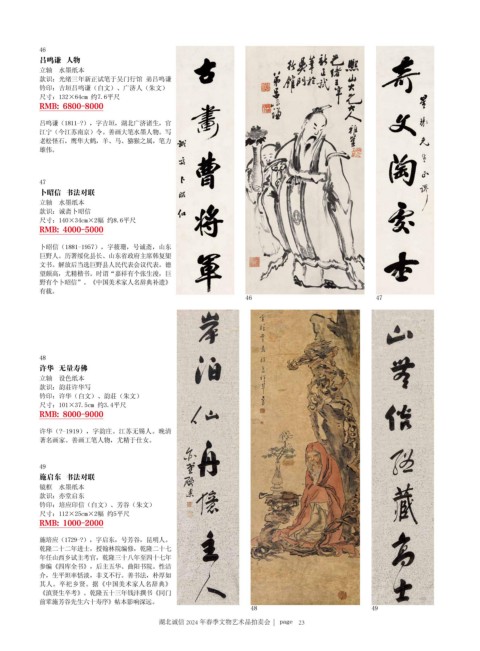 46
吕鸣谦 人物
立轴 水墨纸本
款识：光绪三年新正试笔于吴门行馆 弟吕鸣谦
钤印：古垣吕鸣谦（白文）、广济人（朱文）
尺寸：132×64cm 约7.6平尺
RMB: 6800-8000
吕鸣谦（1811-?），字古垣，湖北广济诸生，官
江宁（今江苏南京）令。善画大笔水墨人物，写
老松怪石，鹰隼大鹤，羊、马、猿猴之属，笔力
雄伟。
47
卜昭信 书法对联
立轴 水墨纸本
款识：诚斋卜昭信
尺寸：140×34cm×2幅 约8.6平尺
RMB: 4000-5000
卜昭信（1881-1957），字筱珊，号诚斋，山东
巨野人。历署绥化县长。山东省政府主席韩复榘
文书。解放后当选巨野县人民代表会议代表。德
望颇高，尤精楷书，时谓“嘉祥有个张生漫，巨
野有个卜昭信”。《中国美术家人名辞典补遗》
有载。
古画曹将军
奇文陶处士
46
47
48
许华 无量寿佛
立轴 设色纸本
款识：韵莊许华写
钤印：许华（白文）、韵莊（朱文）
尺寸：101×37.5cm 约3.4平尺
RMB: 8000-9000
许华（?-1919），字韵庄，江苏无锡人。晚清
著名画家。善画工笔人物，尤精于仕女。
49
施启东 书法对联
镜框 水墨纸本
款识：赤堂启东
钤印：培应印信（白文）、芳谷（朱文）
尺寸：112×25cm×2幅 约5平尺
RMB: 1000-2000
施培应（1729-?），字启东，号芳谷，昆明人。
乾隆二十二年进士，授翰林院编修，乾隆二十七
年任山西乡试主考官，乾隆三十八年至四十七年
参编《四库全书》，后主五华、曲阳书院。性洁
介，生平坦率恬淡，非义不行。善书法，朴厚如
其人，平把乡贤。据《中国美术家人名辞典》
《滇贤生卒考》。乾隆五十三年钱沣撰书《同门
前辈施芳谷先生六十寿序》帖本影响深远。
岸泊仙舟怀主人
山无俗隐藏高士
48
49
湖北诚信2024年春季文物艺术品拍卖会 | page 23